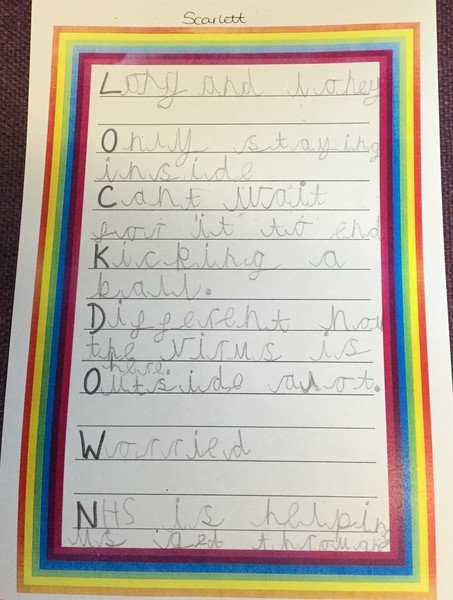 Scarlett
Long and loney
Only staying
inside
Cant wait
for it to end
Kicking a
ball.
Different now
the virus is
here.
Outside alot.
Worried
NHS is helping
us get through